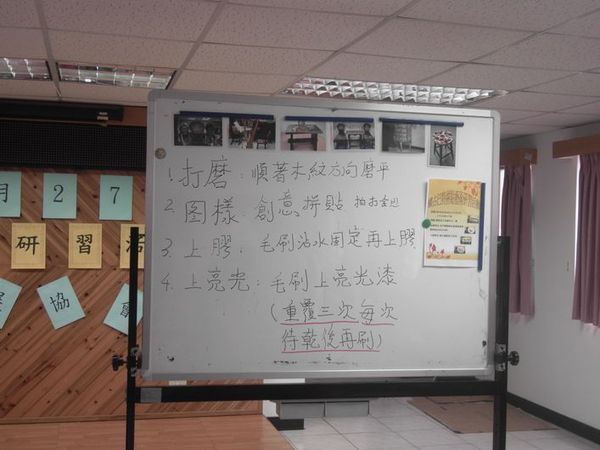 月 2 7
研 習 活
協 會
1. 打磨：順著木紋方向磨平
2. 圖樣：創意拼貼
3. 上膠：毛刷沾水固定再上膠
4. 上亮光：毛刷上亮光漆
(重覆三次每次
待乾後再刷)